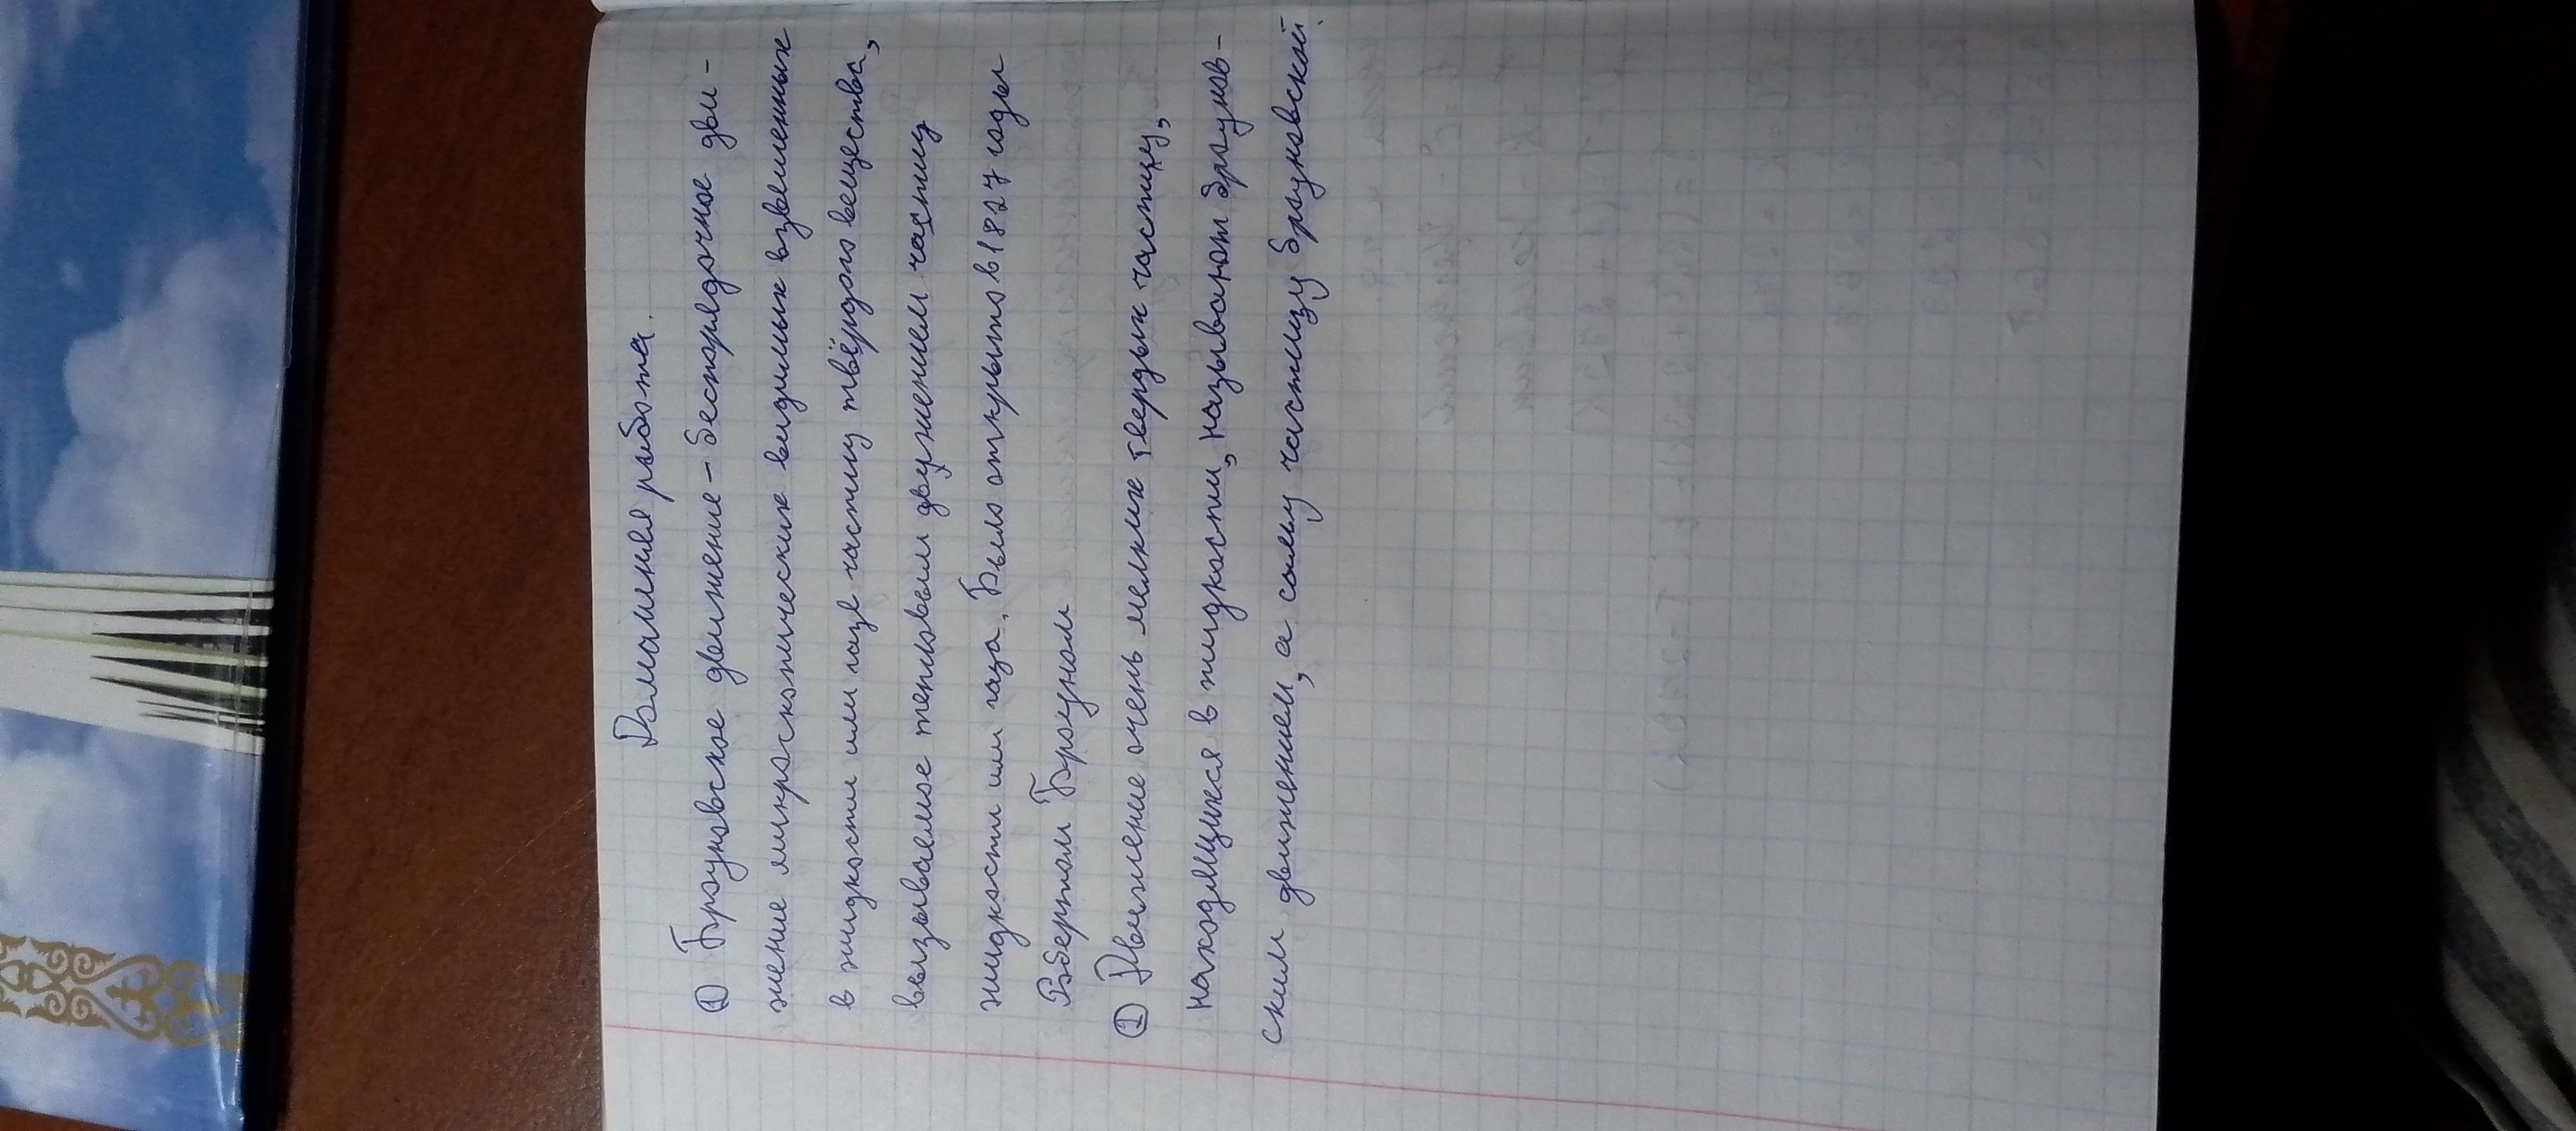 Домашняя работа.
① Броуновское движение - беспорядочное дви-
жение микроскопических видимых взвешенных
в жидкости или газе частиц твёрдого вещества,
вызываемое тепловым движением частиц
жидкости или газа. Было открыто в 1827 годы
Робертом Броуном
② Движение очень мелких твердых частиц,
находящихся в жидкости, называют броунов-
ским движением, а саму частицу броуновской.